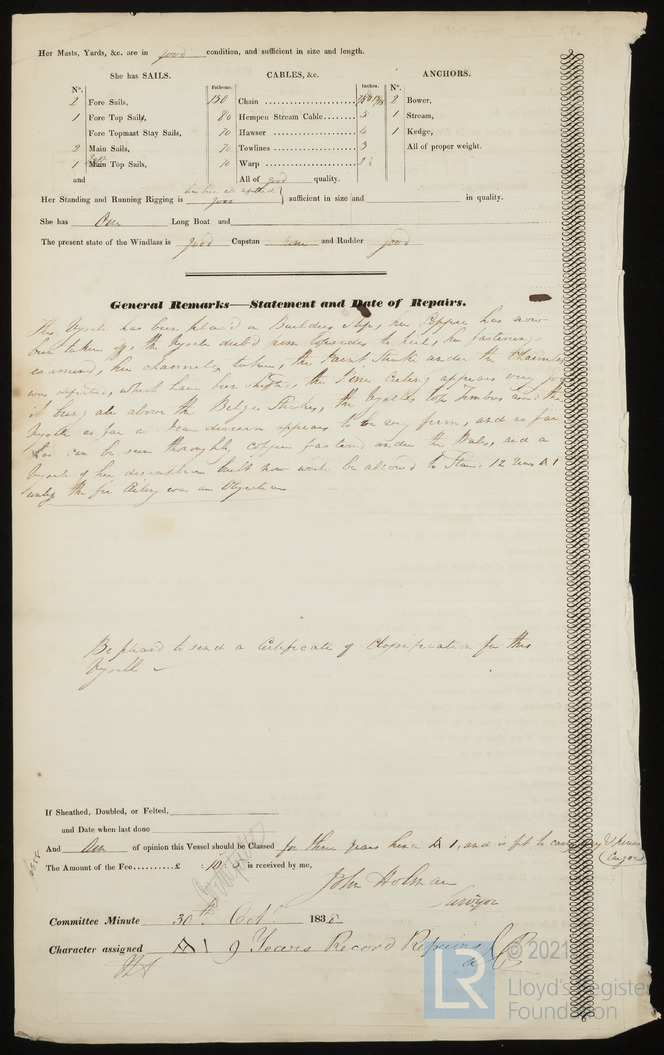 Her Masts, Yards, &c. are in good condition, and sufficient in size and length.
She has SAILS. CABLES, &c. ANCHORS.
Nº. Fathoms. Inches. Nº.
2 Fore Sails, 150 Chain 2 Bower,
1 Fore Top Sails, 80 Hempen Stream Cable 5 1 Stream,
Fore Topmast Stay Sails, 70 Hawser 4 1 Kedge,
2 Main Sails, 70 Towlines 3 All of proper weight.
1 Main Top Sails, 70 Warp 2½
and All of good quality.
Her Standing and Running Rigging is good sufficient in size and in quality.
She has One Long Boat and
The present state of the Windlass is good Capstan none and Rudder good
General Remarks—Statement and Date of Repairs.
This Vessel has been placed on Builders Slip, her Copper has now
been taken off, the Vessel from Topsides to keel, her fastenings
examined, her channels taken, the Paint Strake under the
was defective, which have been shifted, the Pine Ceiling appears very good
it being all above the Bilge Strakes, the Vessels top Timbers and the
Vessel as far as I can discern appears to be very firm, and as far
as can be seen thoroughly copper fastened under the Wales, and a
Vessel of her description built now would be allowed to Stand 12 Years A 1
unless the fir Ceiling was an Objection
Be pleased to send a Certificate of Classification for this
Vessell
If Sheathed, Doubled, or Felted,
and Date when last done
And am of opinion this Vessel should be Classed for three Years hence A 1, and is fit to carry dry & perishable
Cargoes
The Amount of the Fee £ : 10 : 5 is received by me,
John Holman
Surveyor
Committee Minute 30th Octr 1838
Character assigned A 1 9 Years Record Repairs
© 2021
LR Lloyd's Register
Foundation